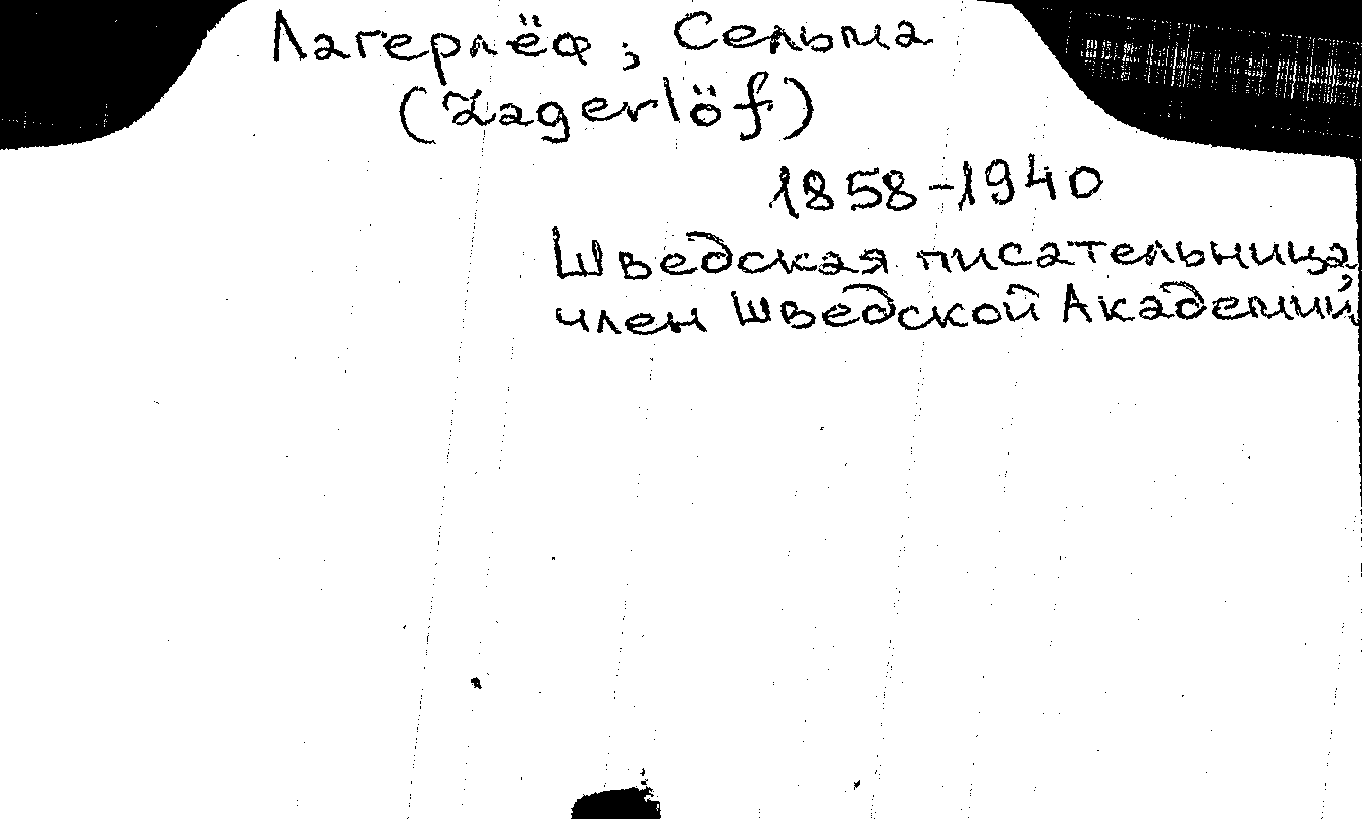 Лагерлёф, Сельма
(Lagerlöf)
1858-1940
Шведская писательница,
член Шведской Академии